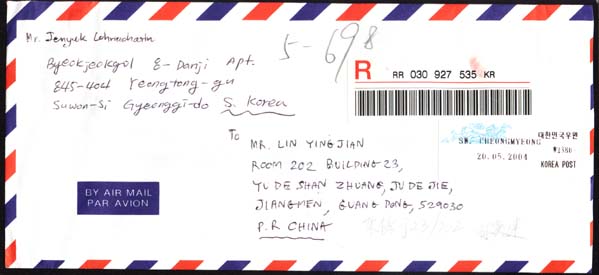 Mr. Jenyuk Lohnacharta
Byeokjeokgol 8-Danji Apt.
845-404 Yeongtong-gu
Suwon-Si Gyeonggi-do S. Korea
5-698
R
RR 030 927 535 KR
SW. CHEONGMYEONG
20.05.2004
대한민국우편
₩2380
KOREA POST
To
MR. LIN YING JIAN
ROOM 202 BUILDING 23,
YU DE SHAN ZHUANG, JU DE JIE,
JIANGMEN, GUANG DONG, 529030
P.R CHINA
BY AIR MAIL
PAR AVION